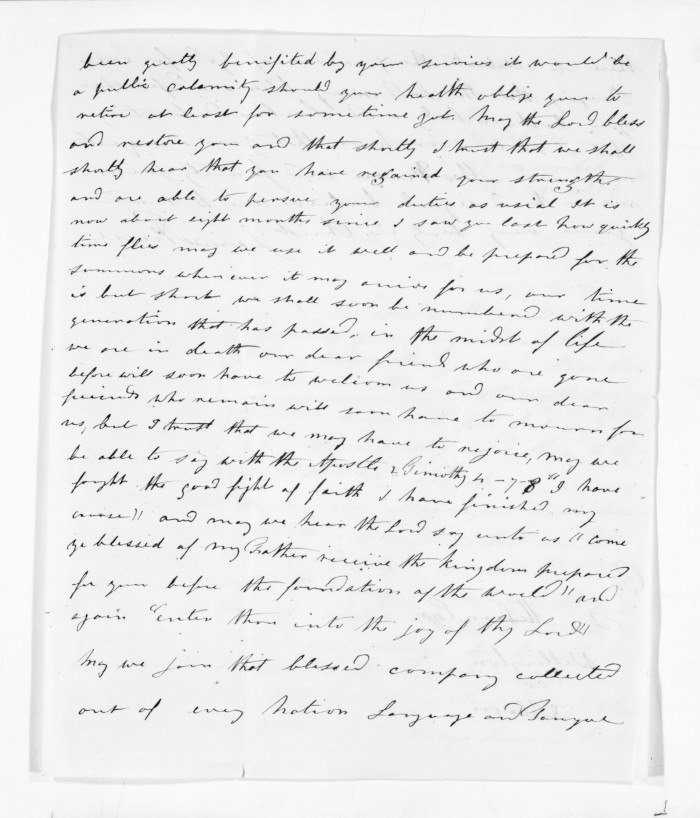 been greatly benifited by your services it would be
a public calamity should your health oblige your to
retire at least for sometime yet. May the Lord bless
and restore you and that shortly I trust that we shall
shortly hear that you have regained your strength
and are able to persue your duties as usial It is
now about eight months since I saw you last how quickly
time flies may we use it well and be prepared for the
summons whenever it may arrive for us, our time
is but short we shall soon be numbered with the
generation that has passed, in the midst of life
we are in death our dear friends who are gone
before will soon have to welcom us and our dear
freinds who remain will soon have to mourn for
us, but I trust that we may have to rejoice, may we
be able to say with the Apostle 2 Timothy 4-7-8 "I have
fought the good fight of faith I have finished my
course" and may we hear the Lord say unto us "come
ye blessed of my Father receive the kingdom prepared
for your before the foundation of the world" and
again "enter thou into the joy of thy Lord"
May we join that blessed company collected
out of every Nation Language and Tongue